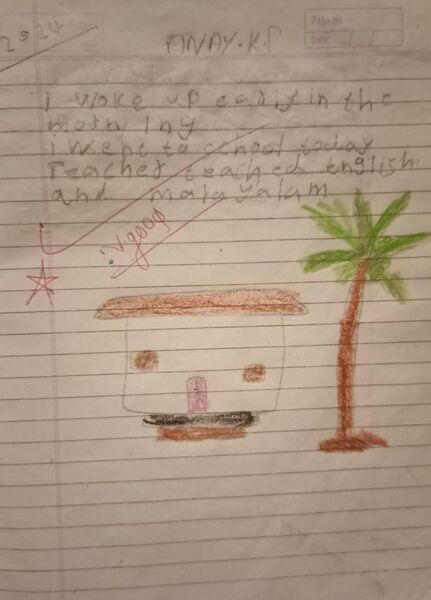 2.24
ANAY.K.P
Page No
Date: / /
i woke up eariy in the
morn Ing
i went to school today
Teacher teached english
and malayalam
V good